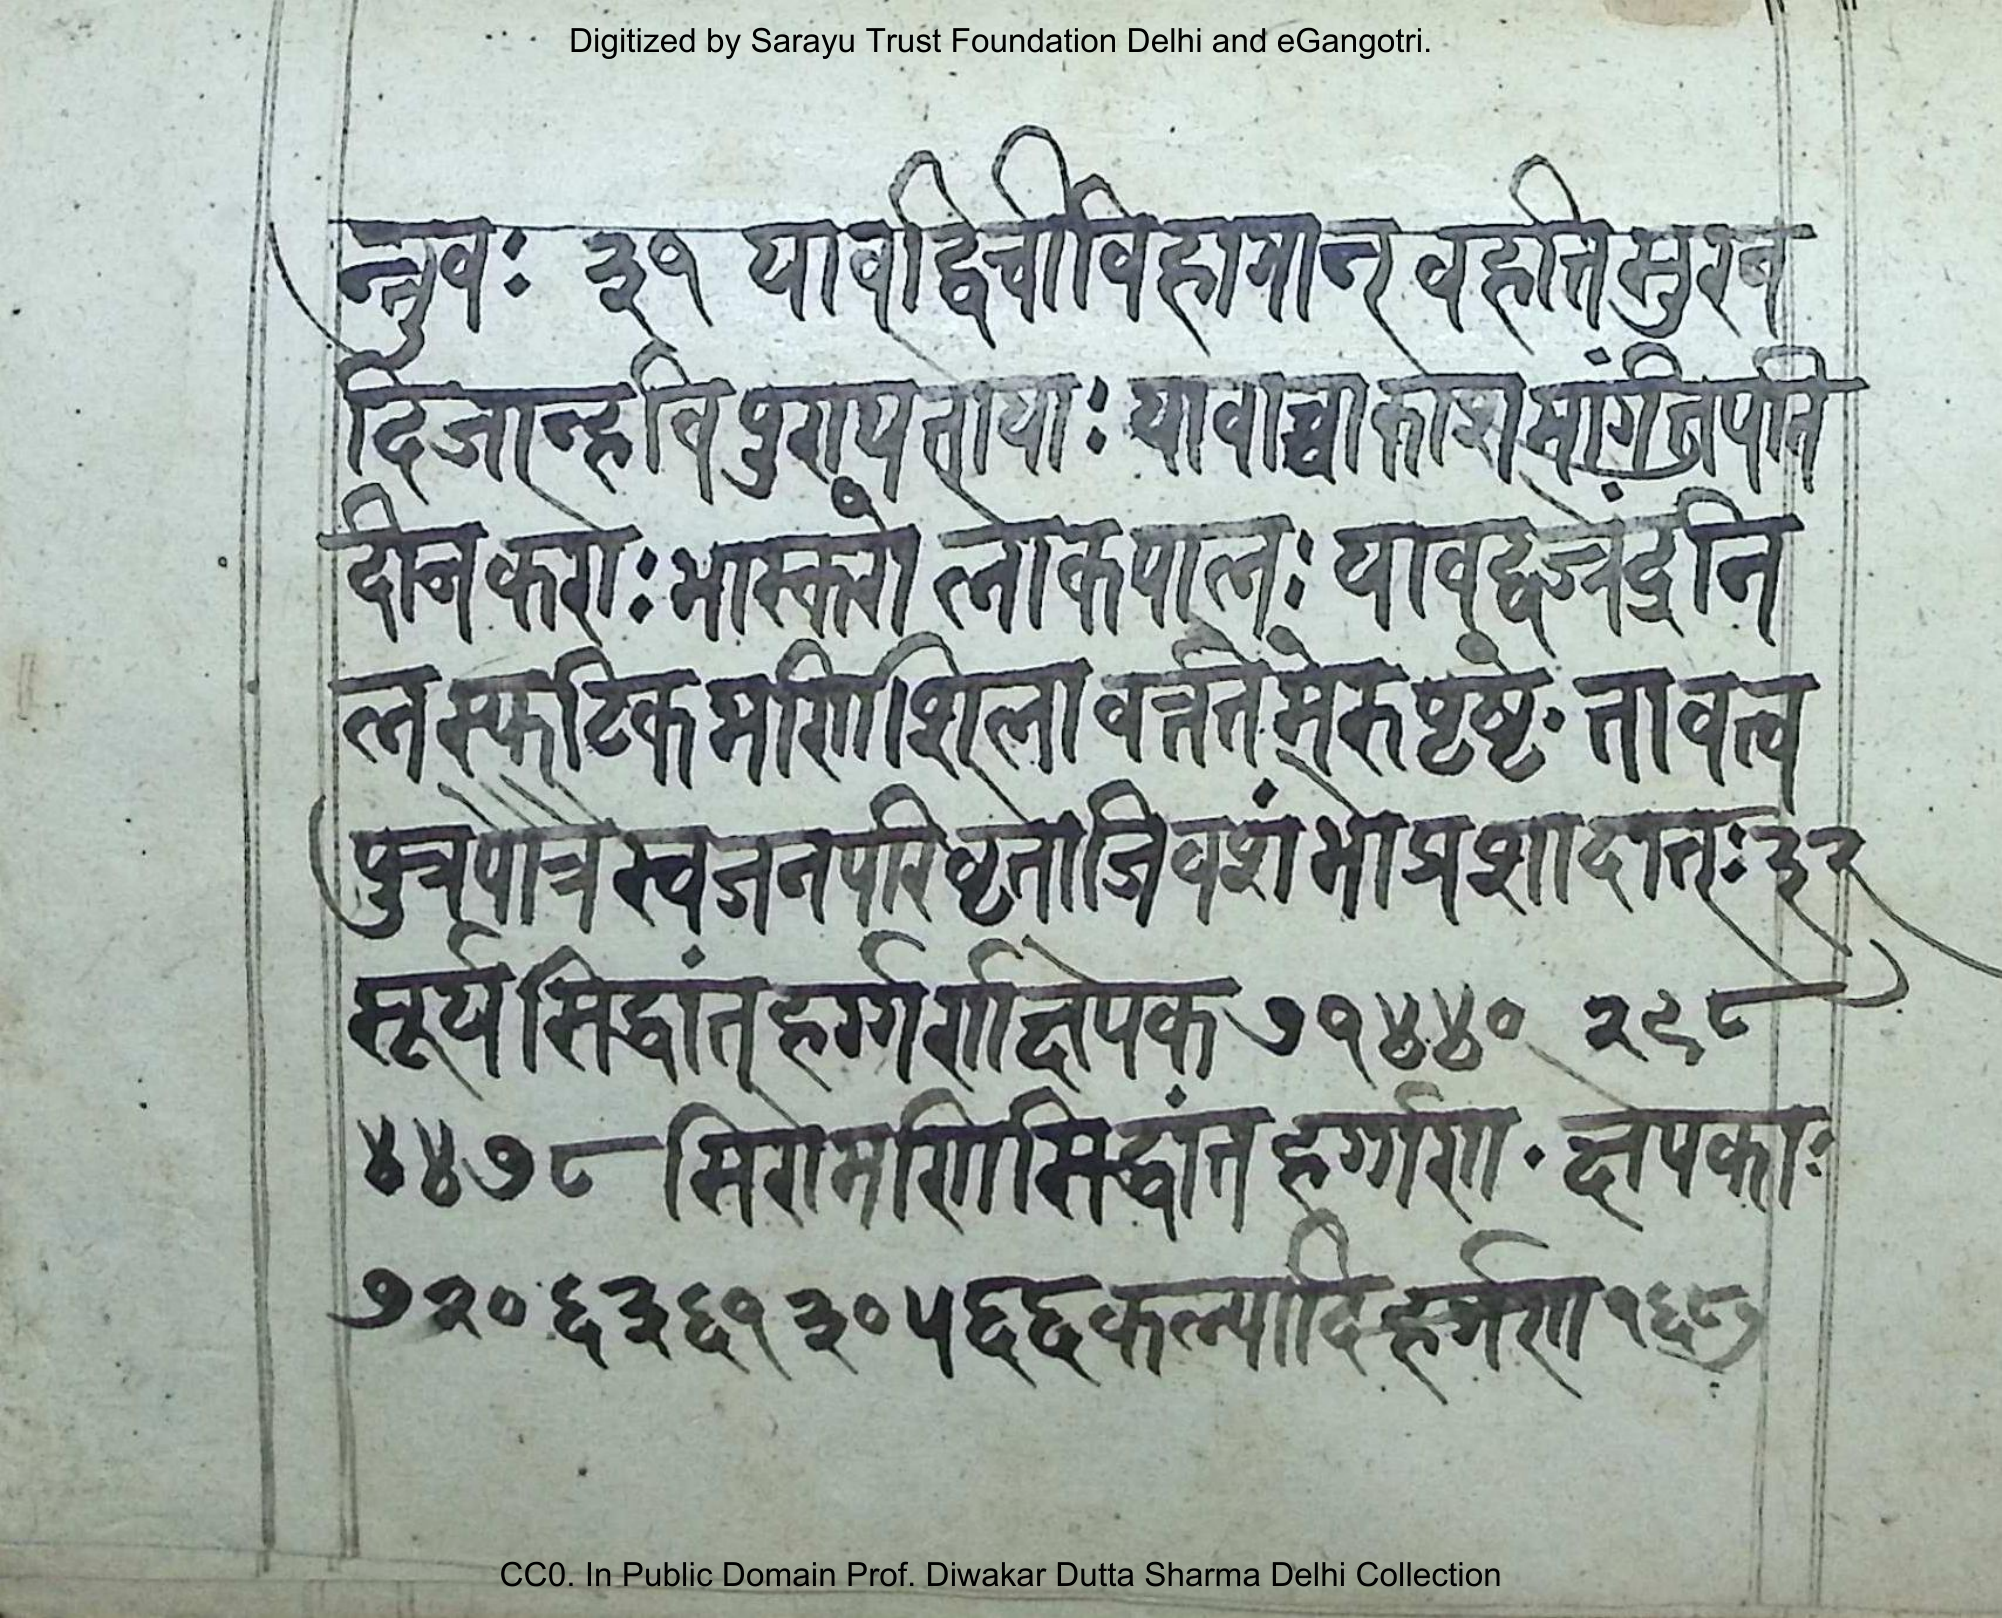 Digitized by Sarayu Trust Foundation Delhi and eGangotri.
न्तुवः ३१ यावद्विचीविहागान्र वहति सुरव
दिजान्हवि पुराय तोयाः यावाच्चाकाश मार्गं तपति
दीनकराः भास्करो लोकपालः यावद्वज्रेंद्रनि
ल स्फटिक मणि शिला वर्त्तते मेरु पृष्ठे तावत्व
पुत्रपौत्रै स्वजन परिवृतो जिव शंभो प्रशादात्ः ३२
सूर्य सिद्धांत् हर्ग्गण क्षेपक ७१४४० २९८
४४७८ सिरोमणि सिद्धांत हर्ग्गण क्षेपकाः
७२०६३६१३०५६६ कल्यादि हर्गण १६८७
CC0. In Public Domain Prof. Diwakar Dutta Sharma Delhi Collection